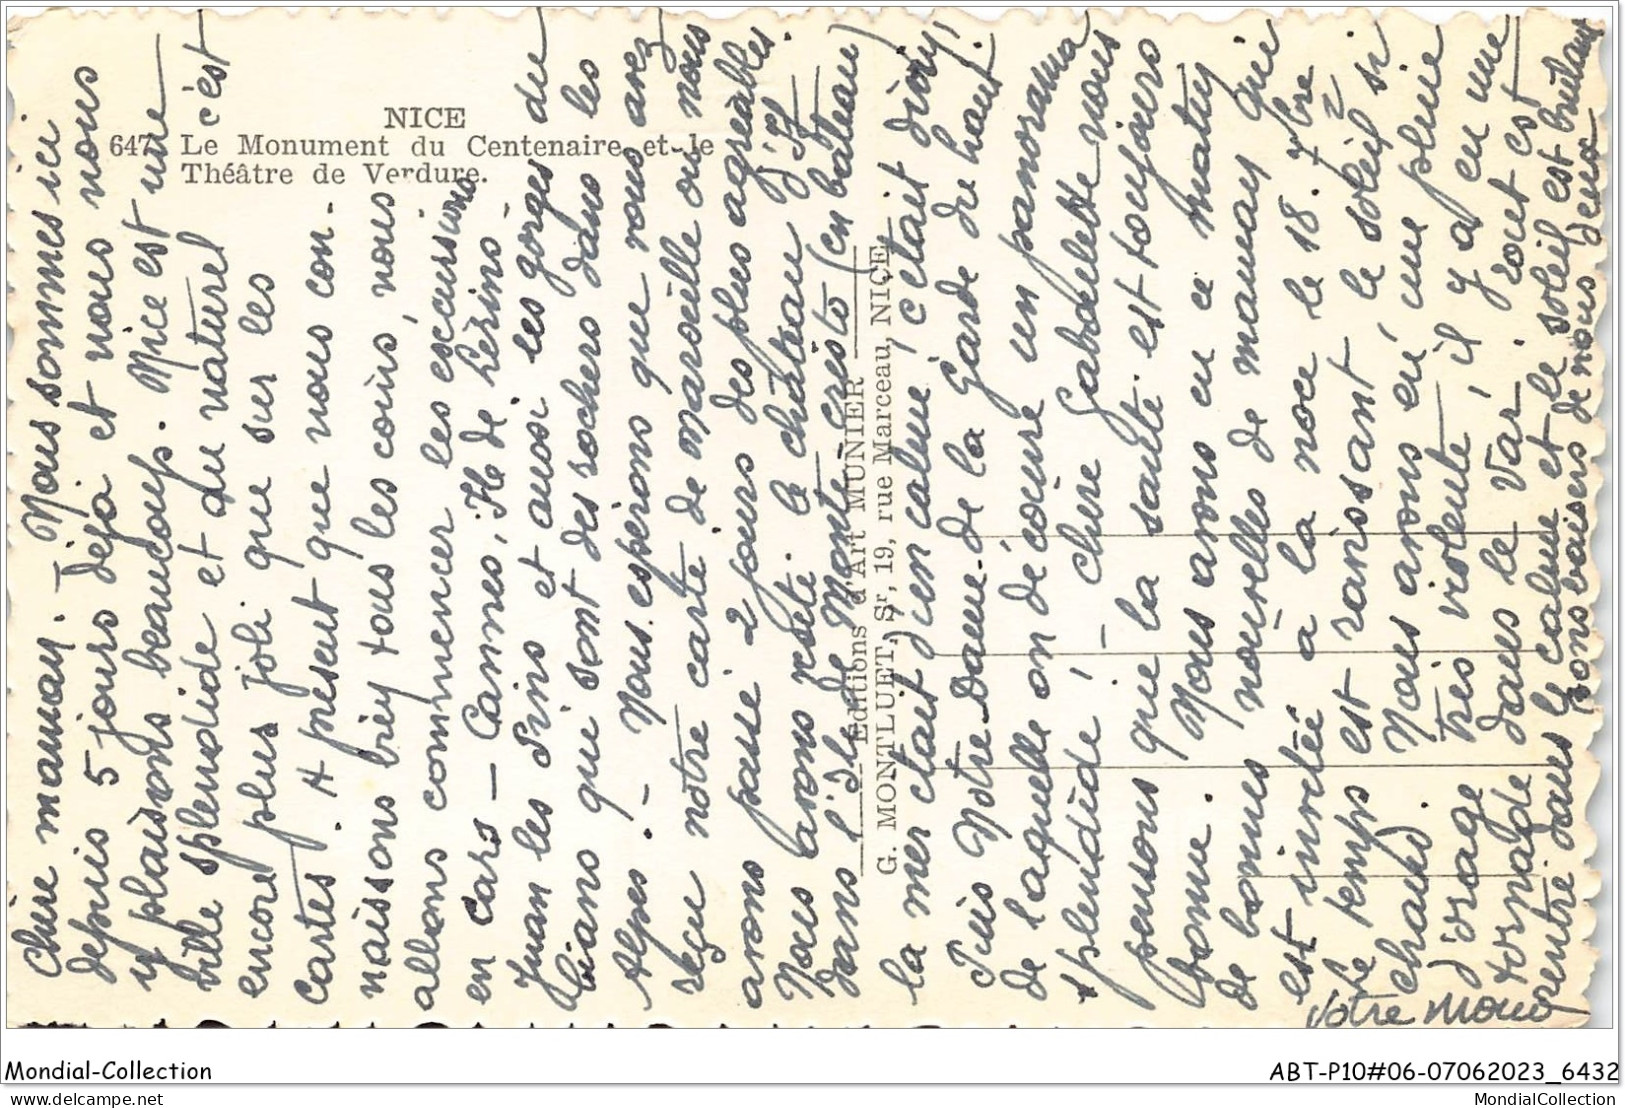 NICE
647 Le Monument du Centenaire et le
Théâtre de Verdure.
Editions d'Art MUNIER
G. MONTLUET, Sr, 19, rue Marceau, NICE
Chère maman. - Nous sommes ici
depuis 5 jours déjà et nous nous
y plaisons beaucoup. Nice est une
ville splendide et du naturel c'est
encore plus joli que sur les
cartes. A présent que nous con-
naissons bien tous les coins, nous
allons commencer les excursions
en cars - Cannes, Ile de Lérins
Juan les Pins et aussi les gorges du
Cians qui sont des rochers dans les
Alpes. - Nous espérons que vous avez
reçu notre carte de Marseille où nous
avons passé 2 jours des plus agréables.
Nous avons visité le château d'If
dans l'île de Monte-Cristo (en bateau)
la mer était d'un calme, c'était divin!
Puis Notre-Dame-de la Garde du haut
de laquelle on découvre un panorama
splendide! - Chère Gabrielle nous
pensons que la santé est toujours
bonne. Nous avons eu ce matin
de bonnes nouvelles de maman qui
est invitée à la noce le 18. 7bre
Le temps est ravissant le soleil si
chaud. Nous avons eu une pluie
très violente, il y a eu une
d'orage dans le Var. Tout est
tornade
rentré dans le calme et le soleil est brûlant
Bons baisers de nous deux
Votre
Mondial-Collection
ABT-P10#06-07062023_6432
delcampe.net
MondialCollection